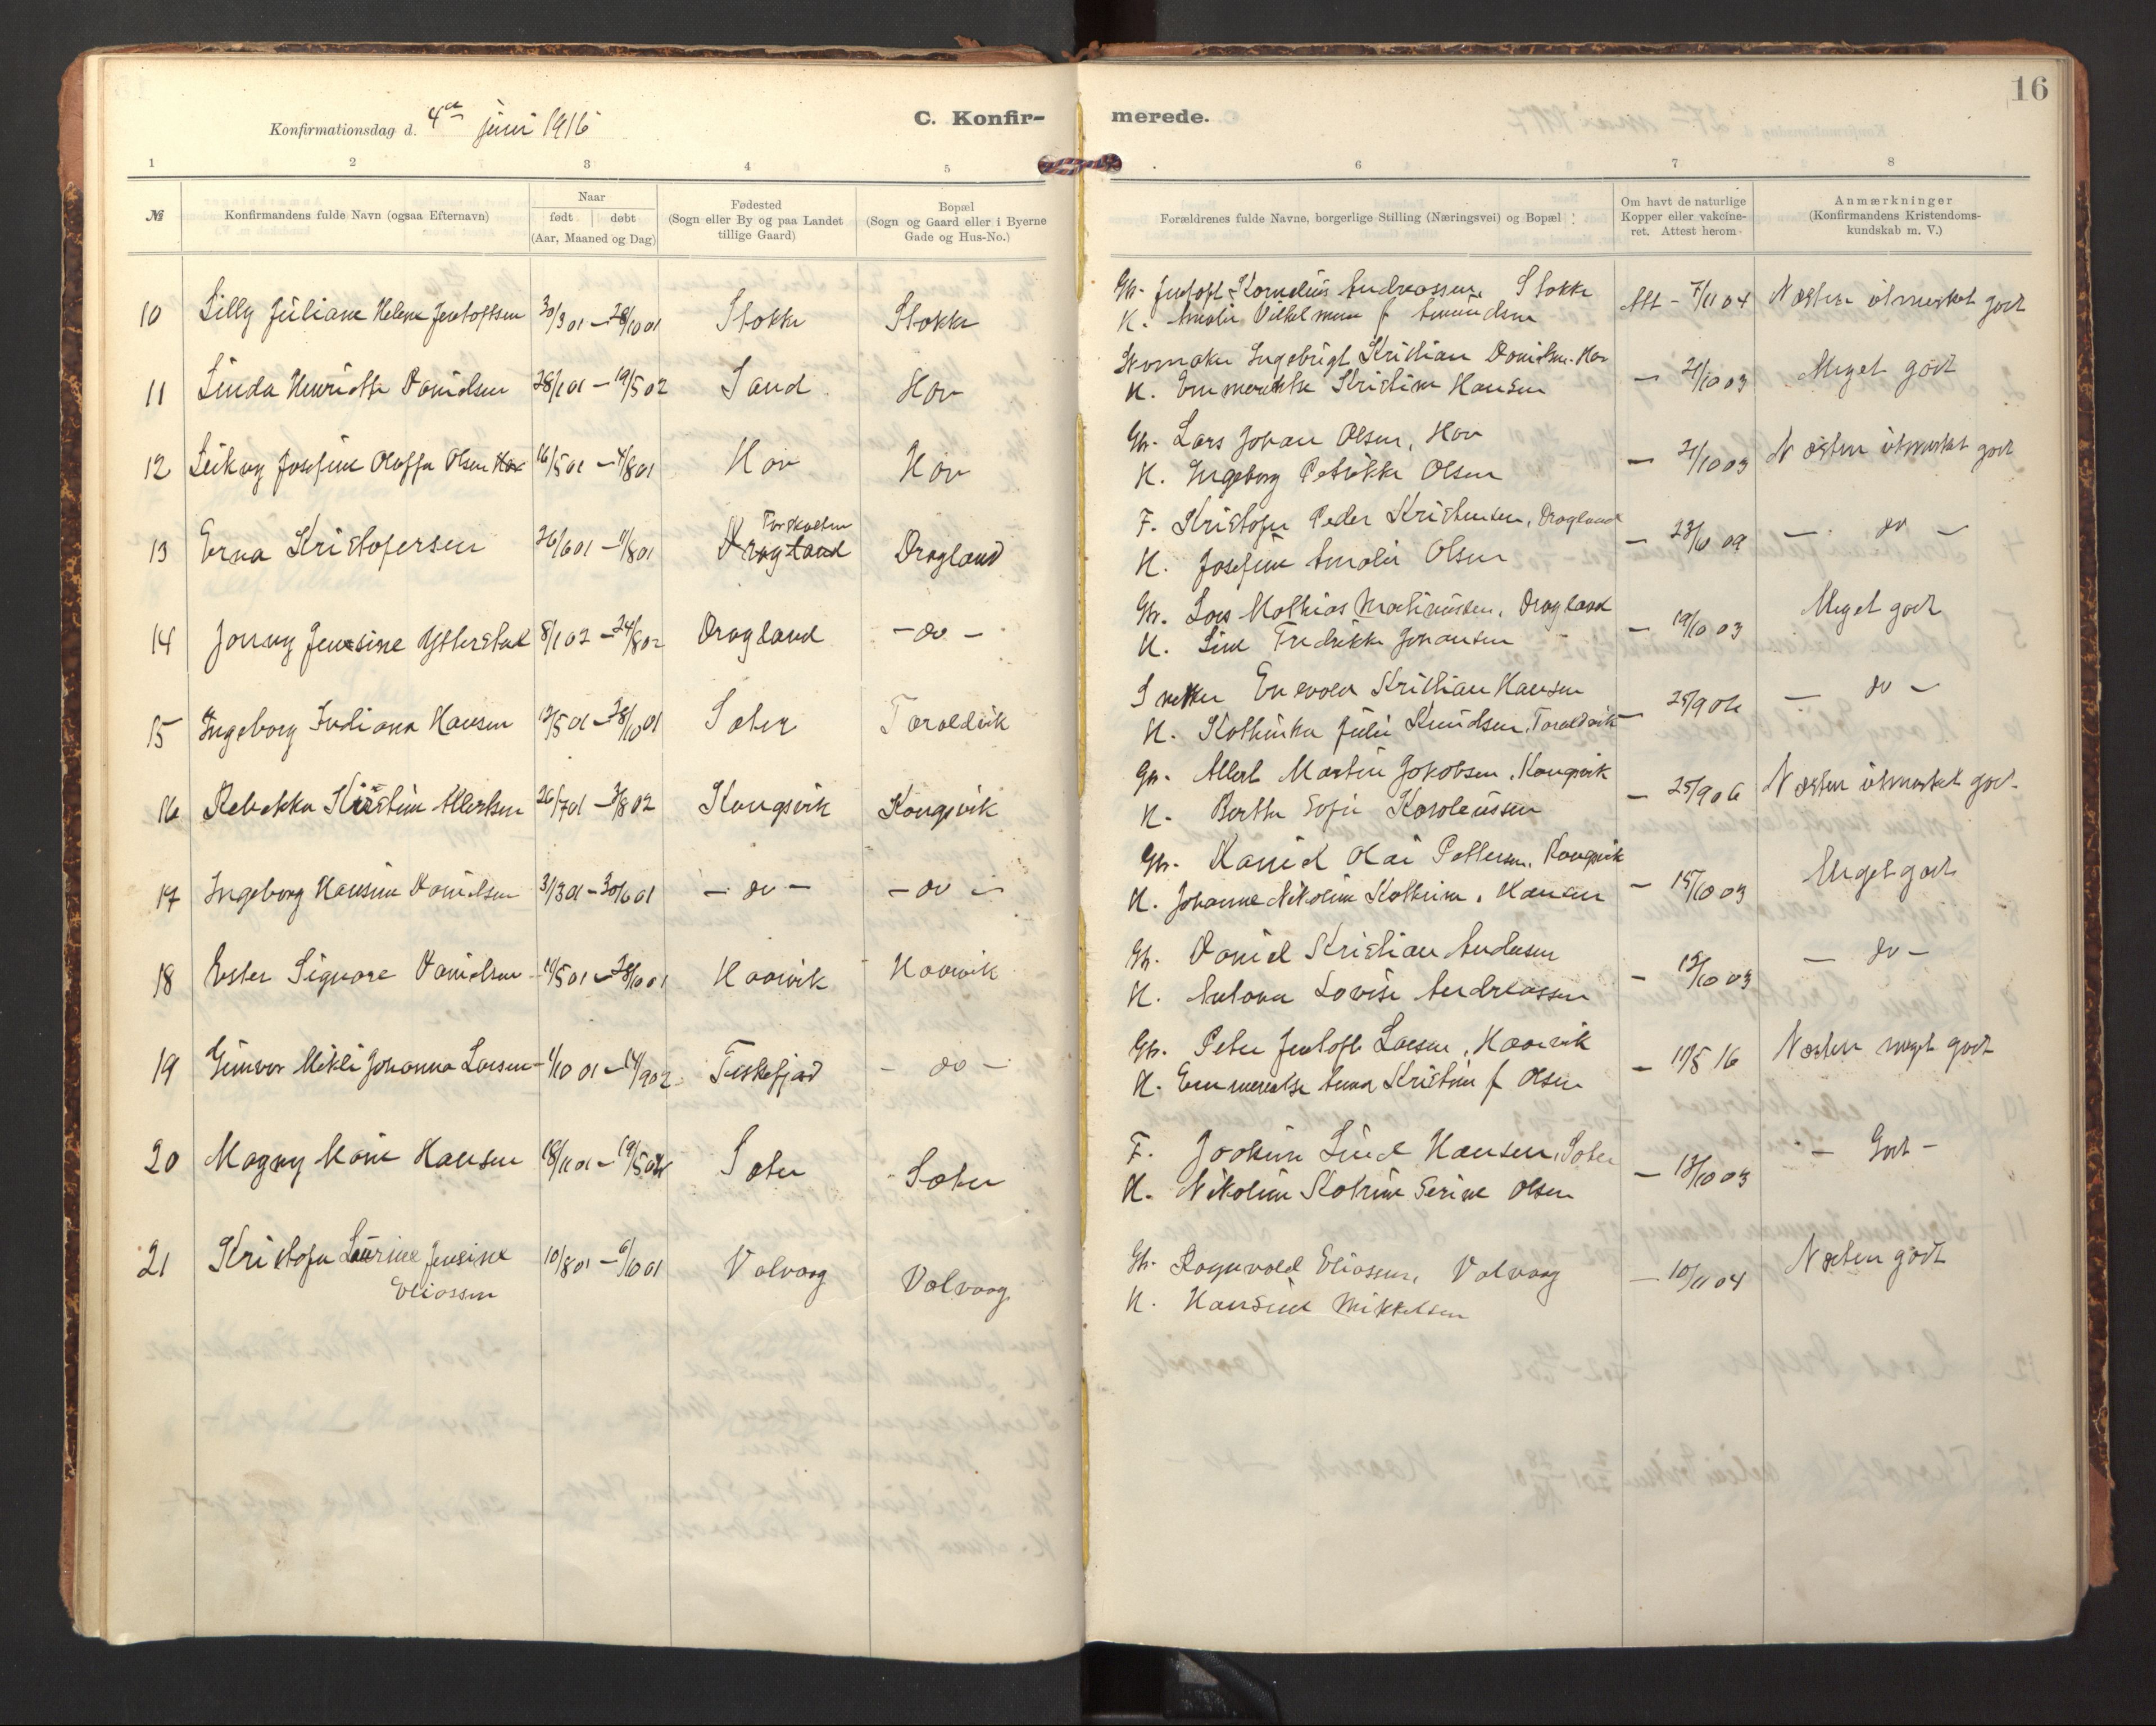 16
Konfirmationsdag d. 4de juni 1916
C. Konfir-
merede.
1 2 3 4 5 6 7 8
№
Konfirmandens fulde Navn (ogsaa Efternavn)
Naar
født døbt
(Aar, Maaned og Dag)
Fødested
(Sogn eller By og paa Landet
tillige Gaard)
Bopæl
(Sogn og Gaard eller i Byerne
Gade og Hus-No.)
Forældrenes fulde Navne, borgerlige Stilling (Næringsvei) og Bopæl
Om havt de naturlige
Kopper eller vakcine-
ret. Attest herom
Anmærkninger
(Konfirmandens Kristendoms-
kundskab m. V.)
10 Lilly Juliane Helene Jentoftsen 30/3 01 – 28/10 01 Stokke Stokke
Gb. Jentoft Kornelius Andreassen, Stokke
K. Amalie Vilhelmine f Amundsen
Att – 7/11 04 Næsten utmerket godt
11 Linda Henriette Danielsen 28/1 01 – 19/5 02 Sand Hov
Ingebrigt Kristian Danielsen. Hov
K. Emmerentse Kristine Hansen
– 21/10 03 Meget godt
12 Josefine Oloffa Olsen 16/5 01 – 4/8 01 Hov Hov
Gb. Lars Johan Olsen, Hov
K. Ingeborg Petrikke Olsen
– 21/10 03 Næsten utmerket godt
13 Erna Kristofersen 26/6 01 – 11/8 01 Dragland Dragland
F. Kristofer Peder Kristensen, Dragland
K. Josefine Amalie Olsen
– 23/6 09 – do –
14 Jonny Jensine Ytterstad 8/1 02 – 24/8 02 Dragland – do –
Gb. Lars Mathias Martinussen, Dragland
K. Line Fredrikke Johansen
– 19/10 03 Meget godt
15 Ingeborg Indiana Hansen 12/5 01 – 28/10 01 Sæter Taraldvik
Snekker Enevold Kristian Hansen
K. Kathinka Julie Knudsen, Taraldvik
– 25/9 06 – do –
16 Rebekka Kristine Albertsen 26/7 01 – 3/8 02 Kongsvik Kongsvik
Gb. Albert Martin Jakobsen, Kongsvik
K. Berthe Sofie Karoleussen
– 25/9 06 Næsten utmerket godt
17 Ingeborg Hansine Danielsen 31/3 01 – 30/6 01 – do – – do –
Gb. Daniel Olai Pettersen, Kongsvik
K. Johanne Nikoline Kathrine Hansen
– 15/10 03 Meget godt
18 Ester Signore Danielsen 11/5 01 – 28/10 01 Haarvik Haarvik
Gb. Daniel Kristian Andersen
K. Antona Lovise Andreassen
– 12/10 03 – do –
19 Gunvor Mikli Johanna Larsen 1/10 01 – 14/9 02 Fiskefjord – do –
Gb. Peter Jentoft Larsen, Haarvik
K. Emmerentse Anna Kristine f Olsen
– 17/5 16 Næsten meget godt
20 Magny Marie Hansen 18/11 01 – 19/5 02 Sæter Sæter
F. Joakim Lind Hansen, Sæter
K. Nikoline Katrine Serine Olsen
– 12/10 03 – Godt –
21 Kristofa Laurine Jensine
Eliassen
10/8 01 – 6/10 01 Valvaag Valvaag
Gb. Ragnvald Eliassen, Valvaag
K. Hansine Mikkelsen
– 10/11 04 Næsten godt